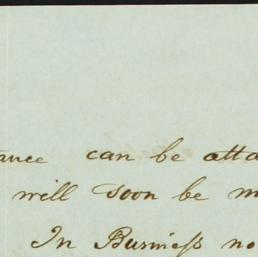 ance can be atta
will soon be m
In Business no